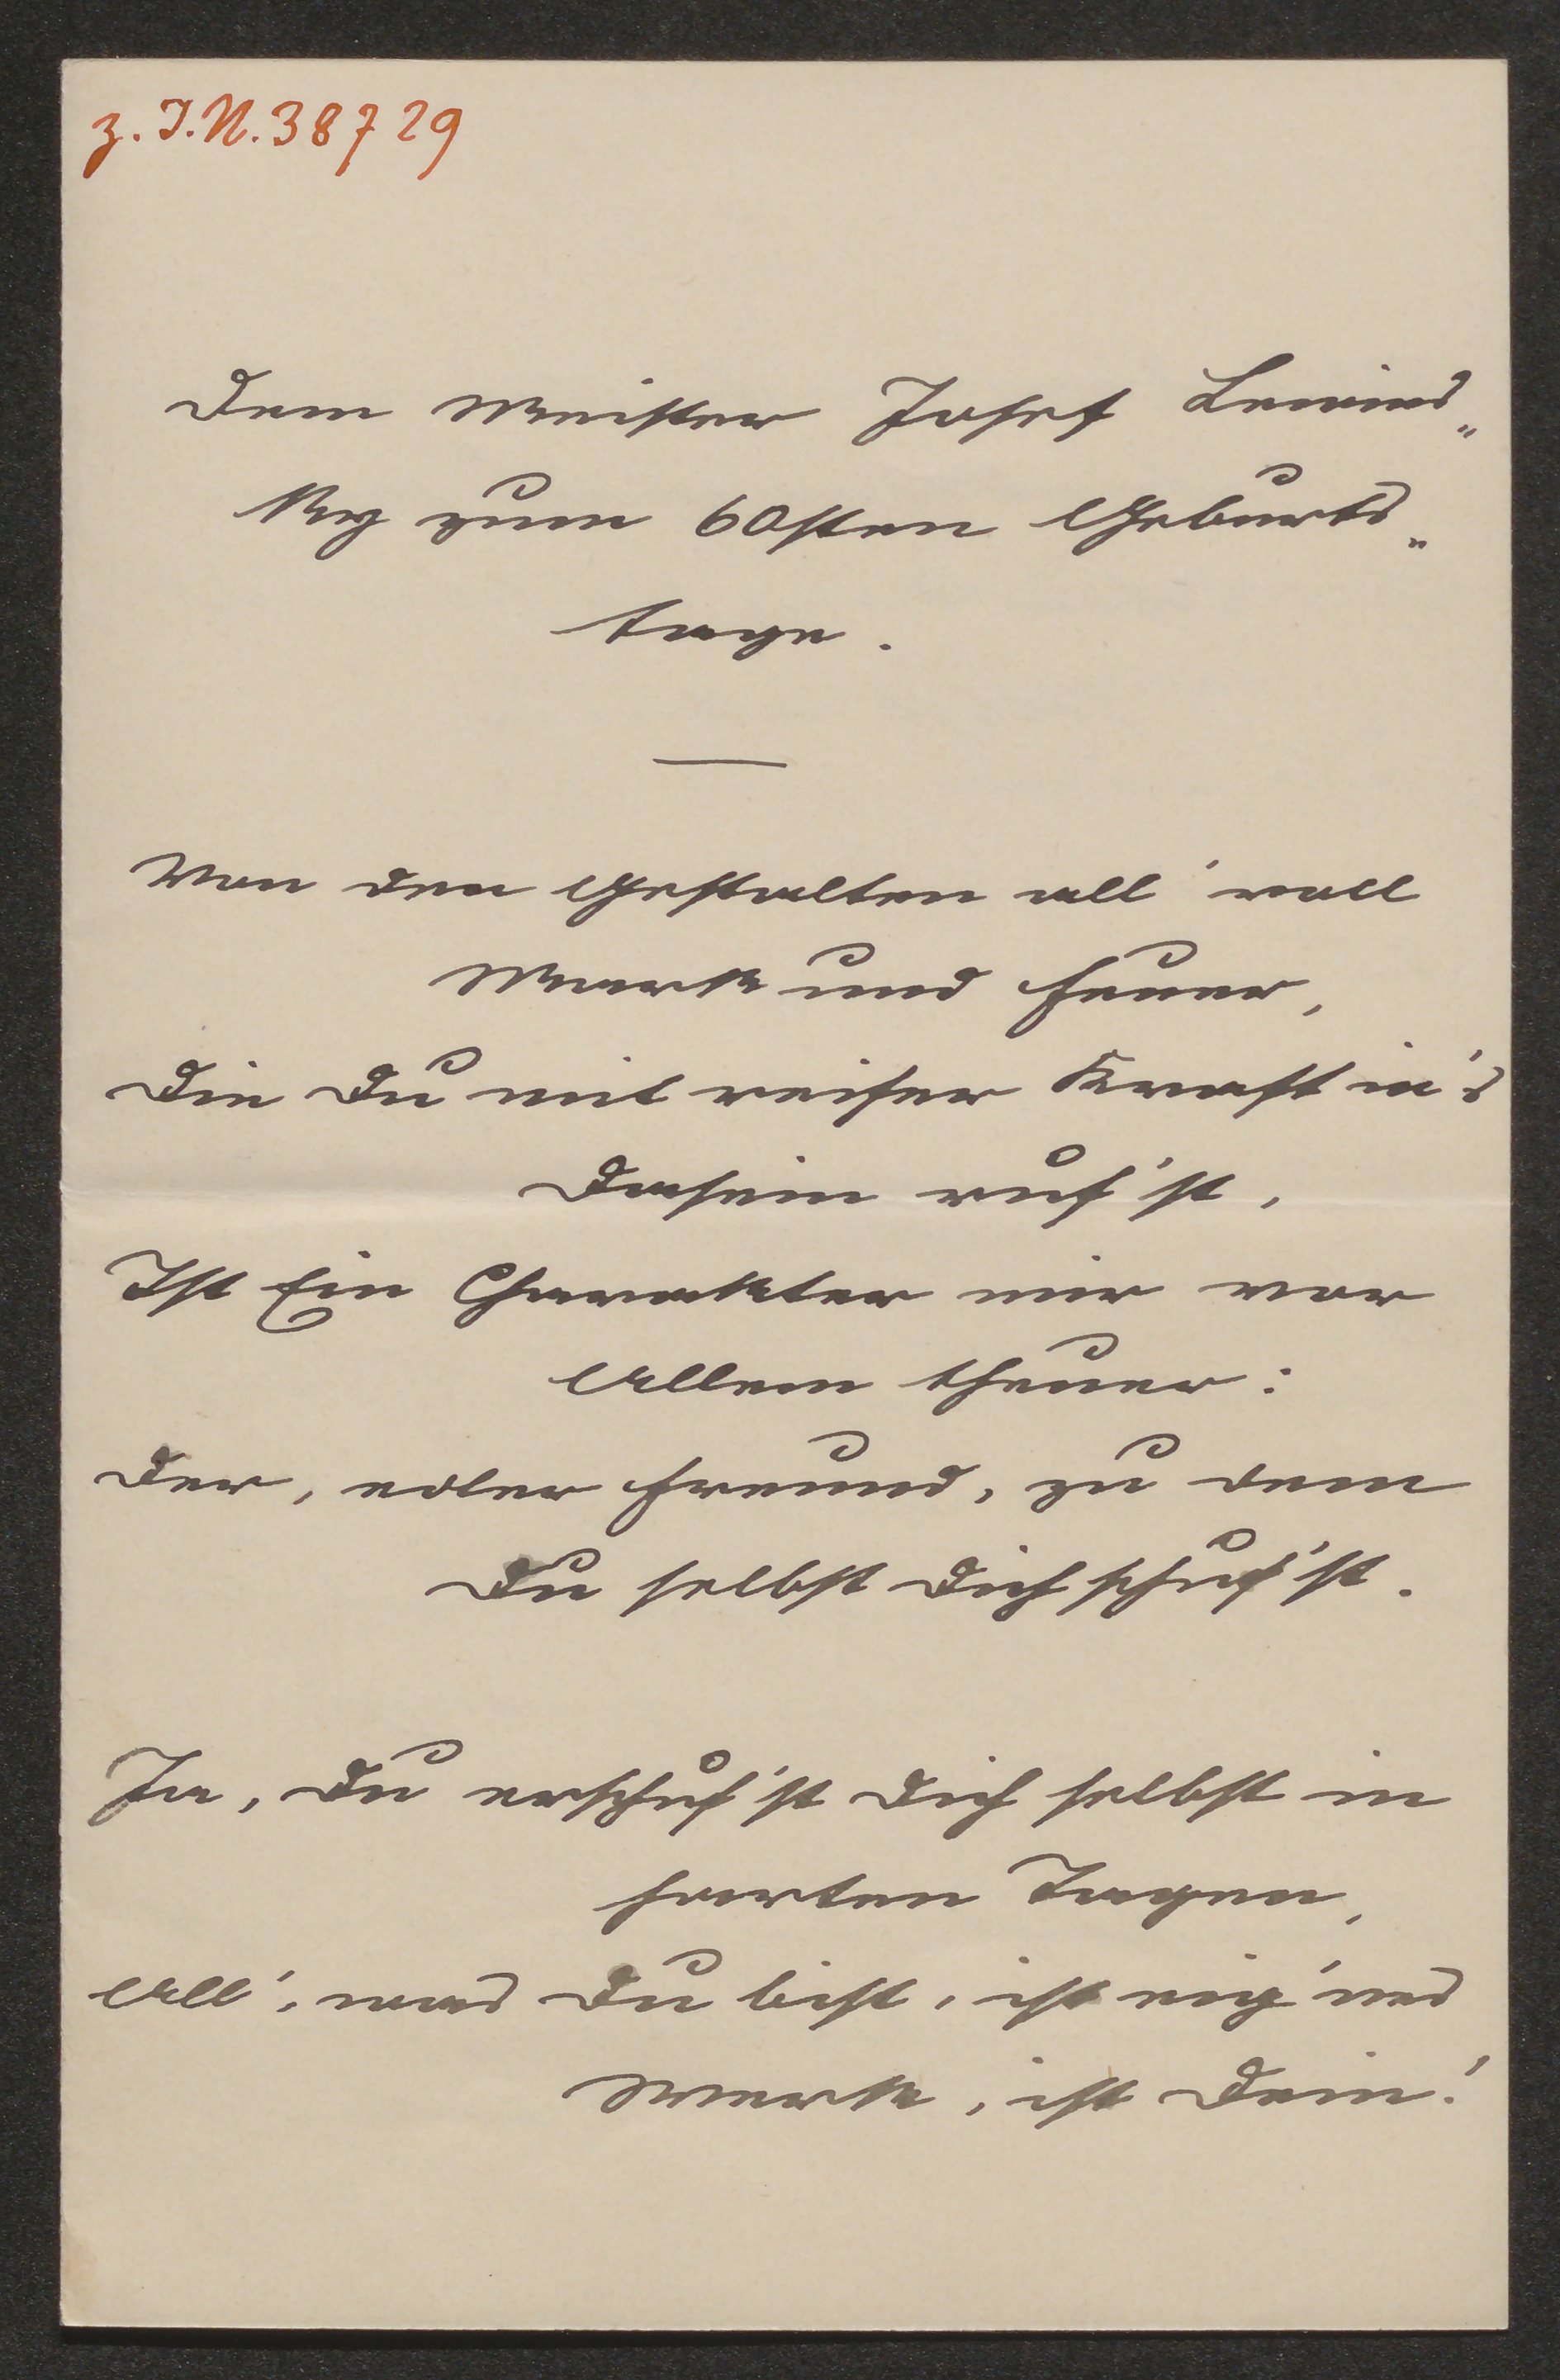 z. I.N. 38729
Dem Meister Josef Lewins„
ky zum 60sten Geburts„
tage.
Von den Gestalten all' voll
Mark und Feuer,
Die Du mit reifer Kraft in's
Dasein ruf'st,
Ist Ein Charakter mir vor
Allem theuer:
Der, edler Freund, zu dem
Du selbst Dich schuf'st.
Ja, Du erschuf'st Dich selbst in
harten Tagen,
All', was Du bist, ist eig'nes
Werk, ist Dein!